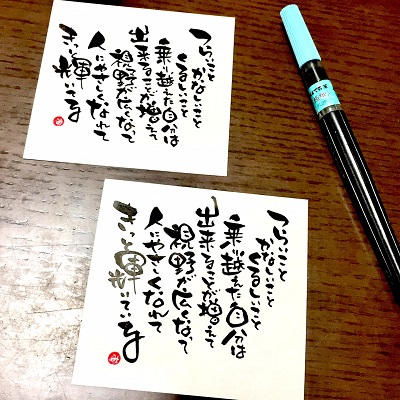 つらいこと
かなしいこと
くるしいこと
乗り越えた自分は
出来ることが増えて
視野が広くなって
人にやさしくなれて
きっと輝いてる
つらいこと
かなしいこと
くるしいこと
乗り越えた自分は
出来ることが増えて
視野が広くなって
人にやさしくなれて
きっと輝いている